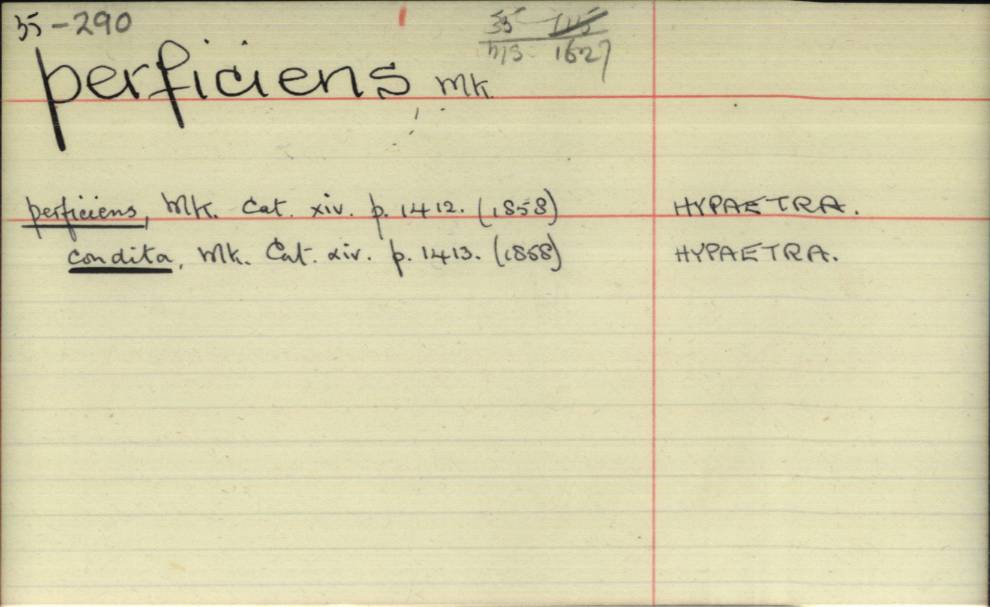 35-290
35
1627
perficiens Mk.
perficiens, Mk. Cat. xiv. p. 1412. (1858) HYPAETRA.
condita, Mk. Cat. xiv. p. 1413. (1858) HYPAETRA.